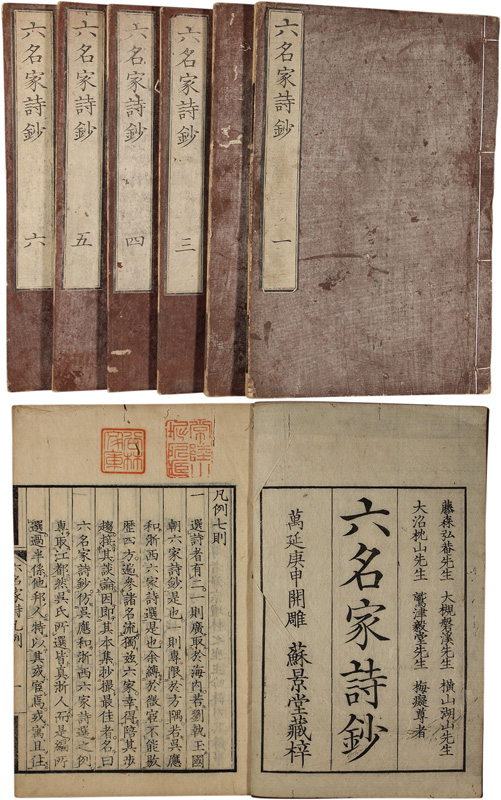 六名家詩鈔 一
六名家詩鈔 三
六名家詩鈔 四
六名家詩鈔 五
六名家詩鈔 六
藤森弘菴先生 大槻磐溪先生 橫山湖山先生
大沼枕山先生 鷲津毅堂先生 梅癡尊者
六名家詩鈔
萬延庚申開雕 蘇景堂藏梓
凡例七則
一 選詩者有二一則廣取於海內若劉執玉國
朝六家詩鈔是也一則專限於方隅若吳應
和浙西六家詩選是也余鑄於微官不能歇
歷四方遍參諸名流獨玆六家幸得陪其步
趨摸其談論因即其本集抄撮最佳者名曰
六名家詩鈔仿吳應和浙西六家詩選之例
專取江都然吳氏所選皆真浙人而是編所
選過半係他邦人特以其或官焉或寓且往
六名家詩凡例 一